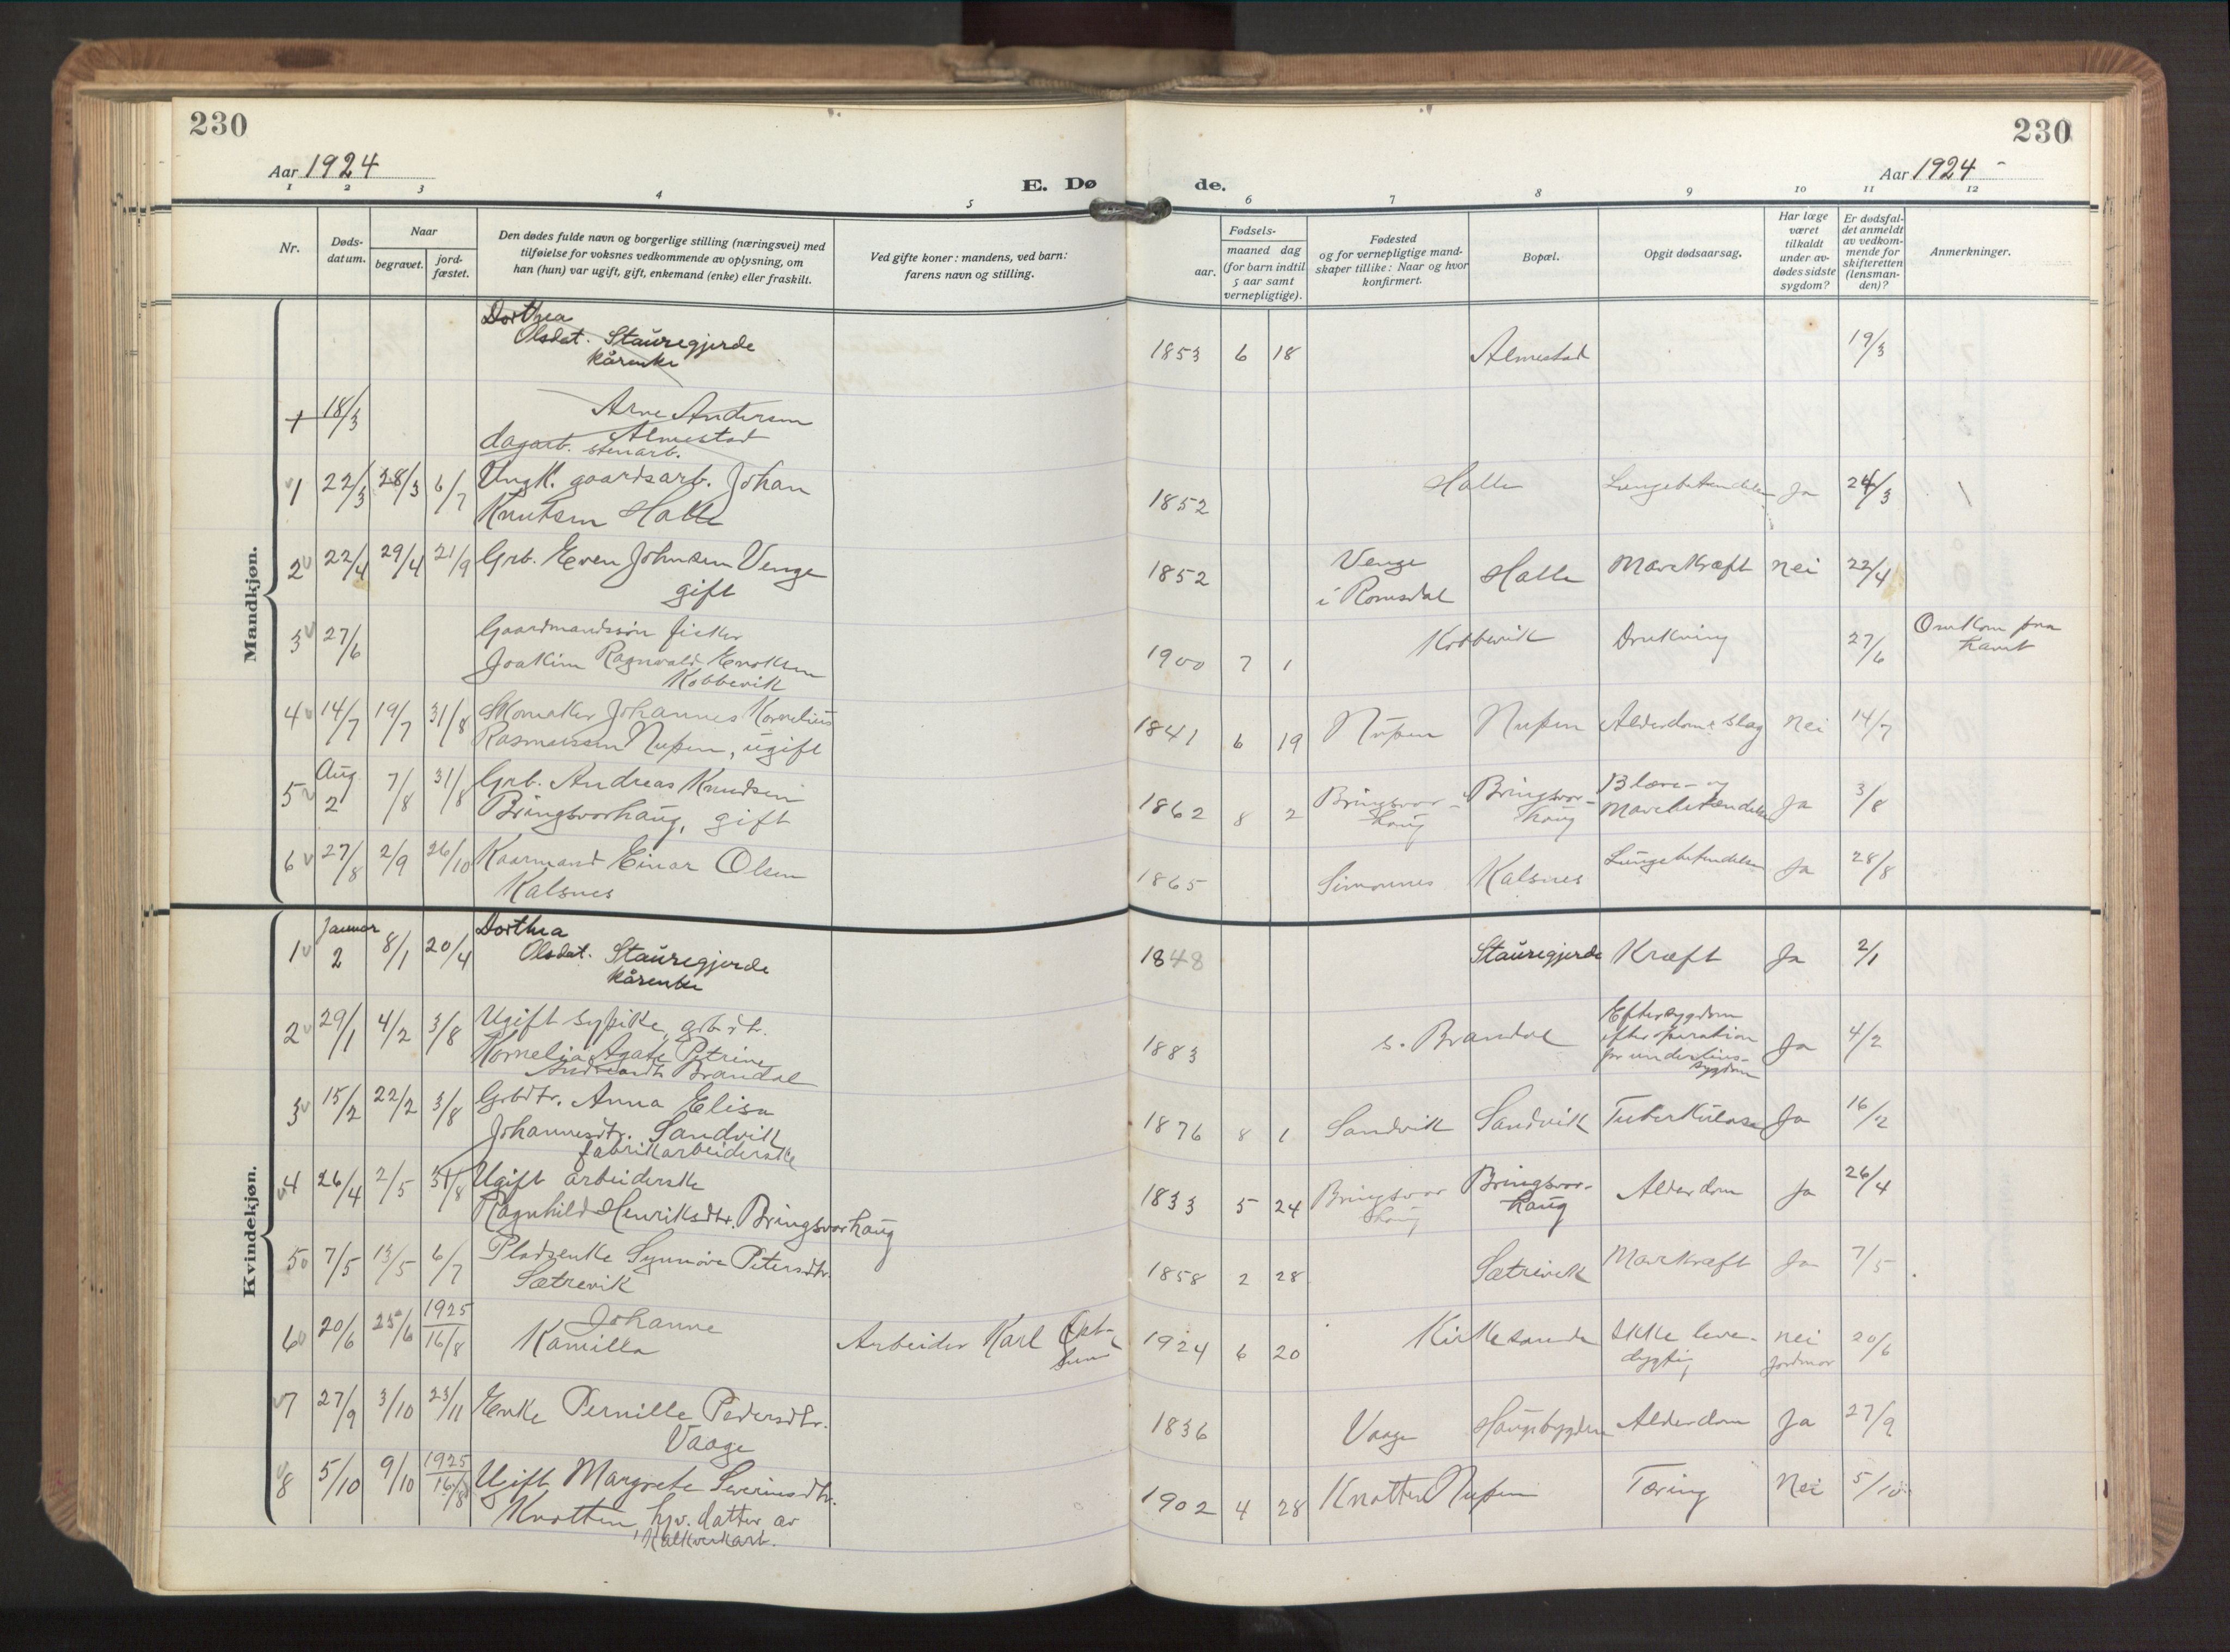 230
230
Aar 1924
Aar 1924
E. Dø
de.
1 2 3 4 5 6 7 8 9 10 11 12
Nr.
Døds-
datum.
Naar
begravet.
jord-
fæstet.
Den dødes fulde navn og borgerlige stilling (næringsvei) med
tilføielse for voksnes vedkommende av oplysning, om
han (hun) var ugift, gift, enkemand (enke) eller fraskilt.
Ved gifte koner: mandens, ved barn:
farens navn og stilling.
Fødsels-
aar.
maaned dag
(for barn indtil
5 aar samt
vernepligtige).
Fødested
og for vernepligtige mand-
skaper tillike: Naar og hvor
konfirmert.
Bopæl.
Opgit dødsaarsag.
Har læge
været
tilkaldt
under av-
dødes sidste
sygdom?
Er dødsfal-
det anmeldt
av vedkom-
mende for
skifteretten
(lensman-
den)?
Anmerkninger.
Mandkjøn.
Dorthea
Olsdat. Stauregjerde
kårenke
1853 6 18 Almestad 19/3
1 18/3 Arne Andersen
dagarb. Almestad
stenarb.
1 22/3 28/3 6/7 Ungk. gaardsarb. Johan
Knutsen Halle
1852 Halle Lungebetendelse Ja 24/3
2 22/4 29/4 21/9 Grb. Even Johnsen Venge
gift
1852 Venge
i Romsdal
Halle Mavekræft nei 22/4
3 27/6 Gaardmandssøn fisker
Joakim Ragnvald Enoksen
Kobbevik
1900 7 1 Kobbevik Drukning 27/6 Omkom paa
havet
4 14/7 19/7 31/8 Skomaker Johannes Kornelius
Rasmussen Nupen, ugift
1841 6 19 Nupen Nupen Alderdom slag nei 14/7
5 Aug.
2 7/8 31/8 Grb. Andreas Knudsen
Bringsvorhaug, gift
1862 8 2 Bringsvor-
haug
Bringsvor-
haug
Blære- og
Mavebetændelse Ja 3/8
6 27/8 2/9 26/10 Kaarmand Einar Olsen
Kalsnes
1865 Simonnes Kalsnes Lungebetendelse Ja 28/8
Kvindekjøn.
1 Januar
2 8/1 20/4 Dorthea
Olsdat. Stauregjerde
kårenke
1848 Stauregjerde Kræft Ja 2/1
2 29/1 4/2 3/8 Ugift sypike, grbdtr.
Kornelia Agate Petrine
Brandal
1883 s. Brandal Eftersygdom
efter operation
for underlivs-
sygdom Ja 4/2
3 15/2 22/2 3/8 Grbdtr. Anna Elisa
Johannesdtr. Sandvik
fabrikarbeiderske
1876 8 1 Sandvik Sandvik Tuberkulose Ja 16/2
4 26/4 2/5 31/8 Ugift arbeiderske
Ragnhild Henriksdtr. Bringsvorhaug
1833 5 24 Bringsvor
haug
Bringsvor-
haug
Alderdom Ja 26/4
5 7/5 13/5 6/7 Pladsenke Synnøve Petersdtr.
Sætrevik
1858 2 28 Sætrevik Mavekræft Ja 7/5
6 20/6 25/6 1925
16/8 Johanne
Kamilla
Arbeider Karl
1924 6 20 Kirkesande Ikke leve-
dygtig nei
jordmor 20/6
7 27/9 3/10 23/11 Enke Pernille Pedersdtr.
Vaage
1836 Vaage Haugsbygden Alderdom Ja 27/9
8 5/10 9/10 1925
16/8 Ugift Margrete Severinsdtr.
Knotten, hjv. datter av
Kalkverkarb.
1902 4 28 Knotten Nupen Tæring Nei 5/10